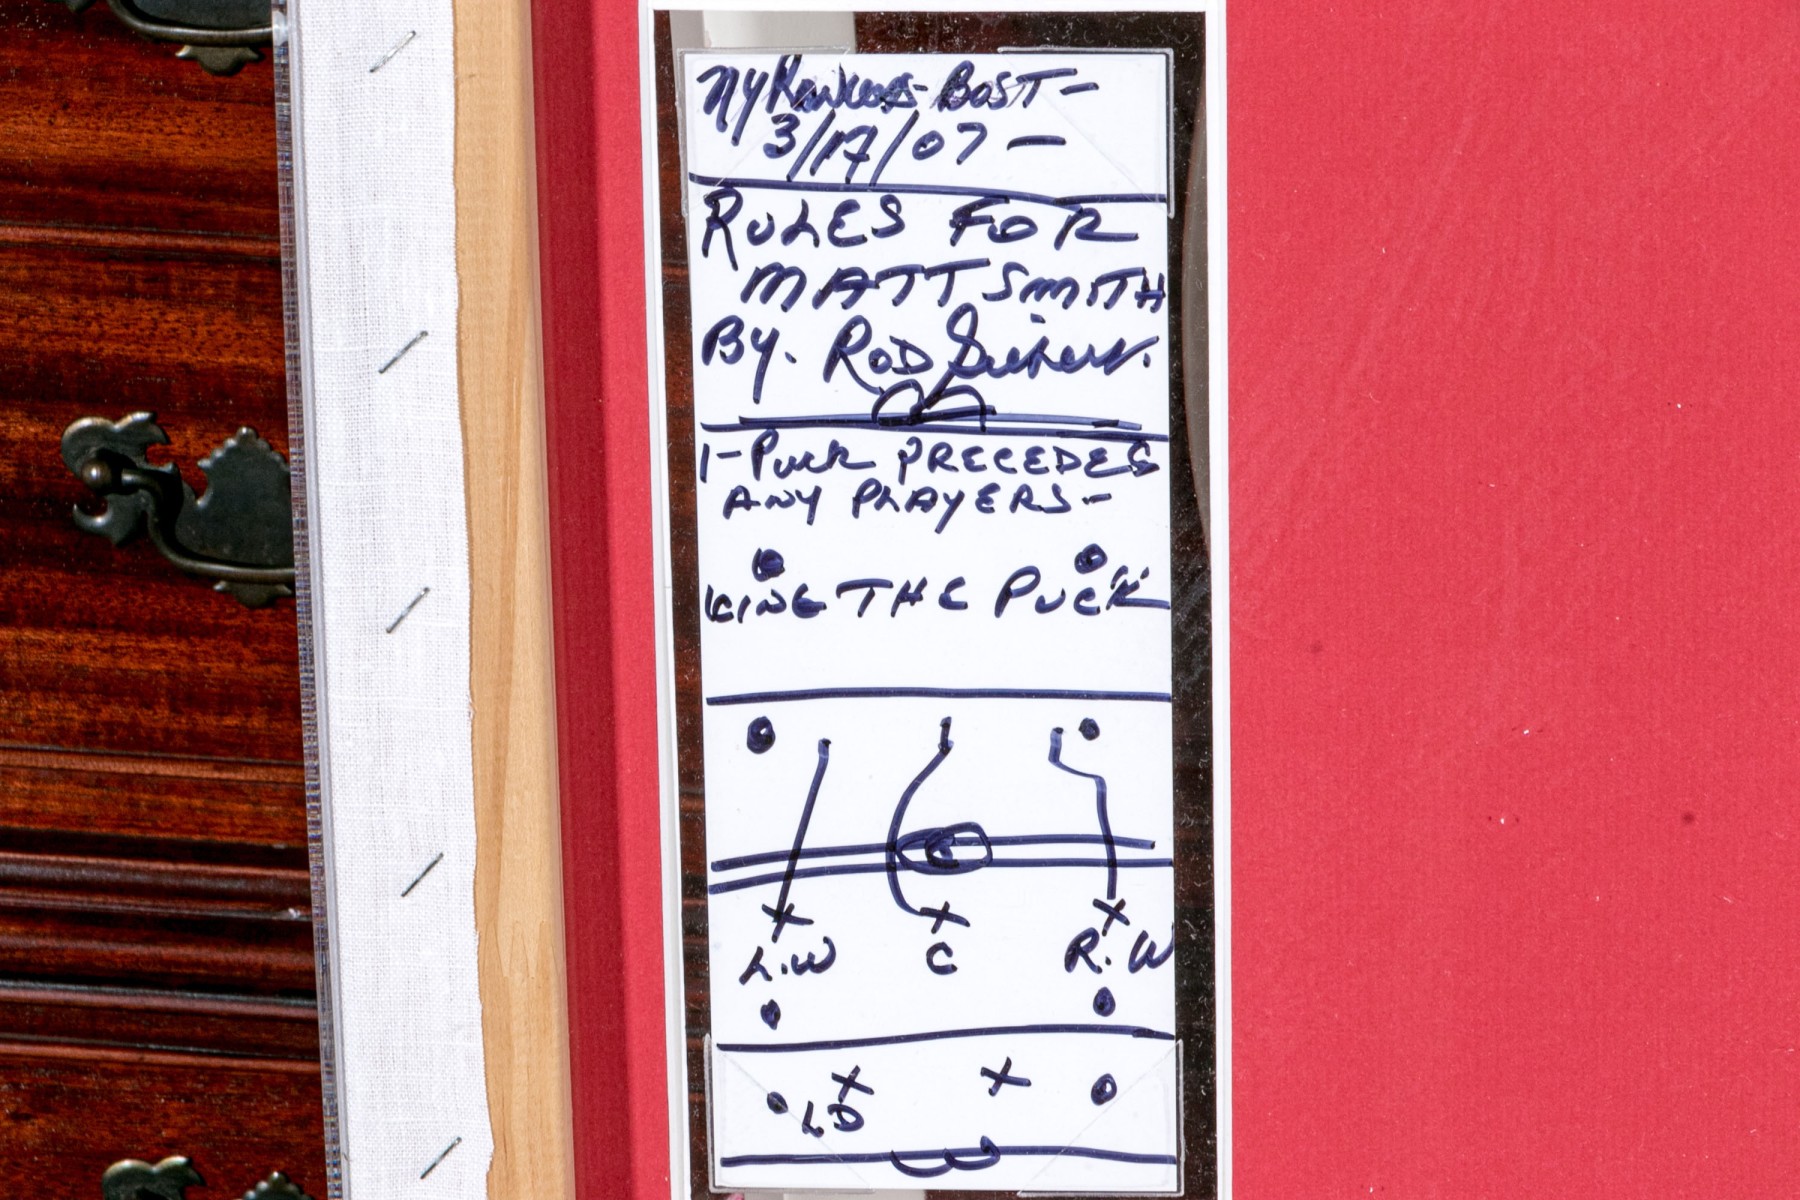 NY Rangers - BOST -
3/17/07 -
RULES FOR
MATT SMITH
BY. ROD
1- PUCK PRECEDES
ANY PLAYERS -
THE PUCK
L.W C R.W
LD